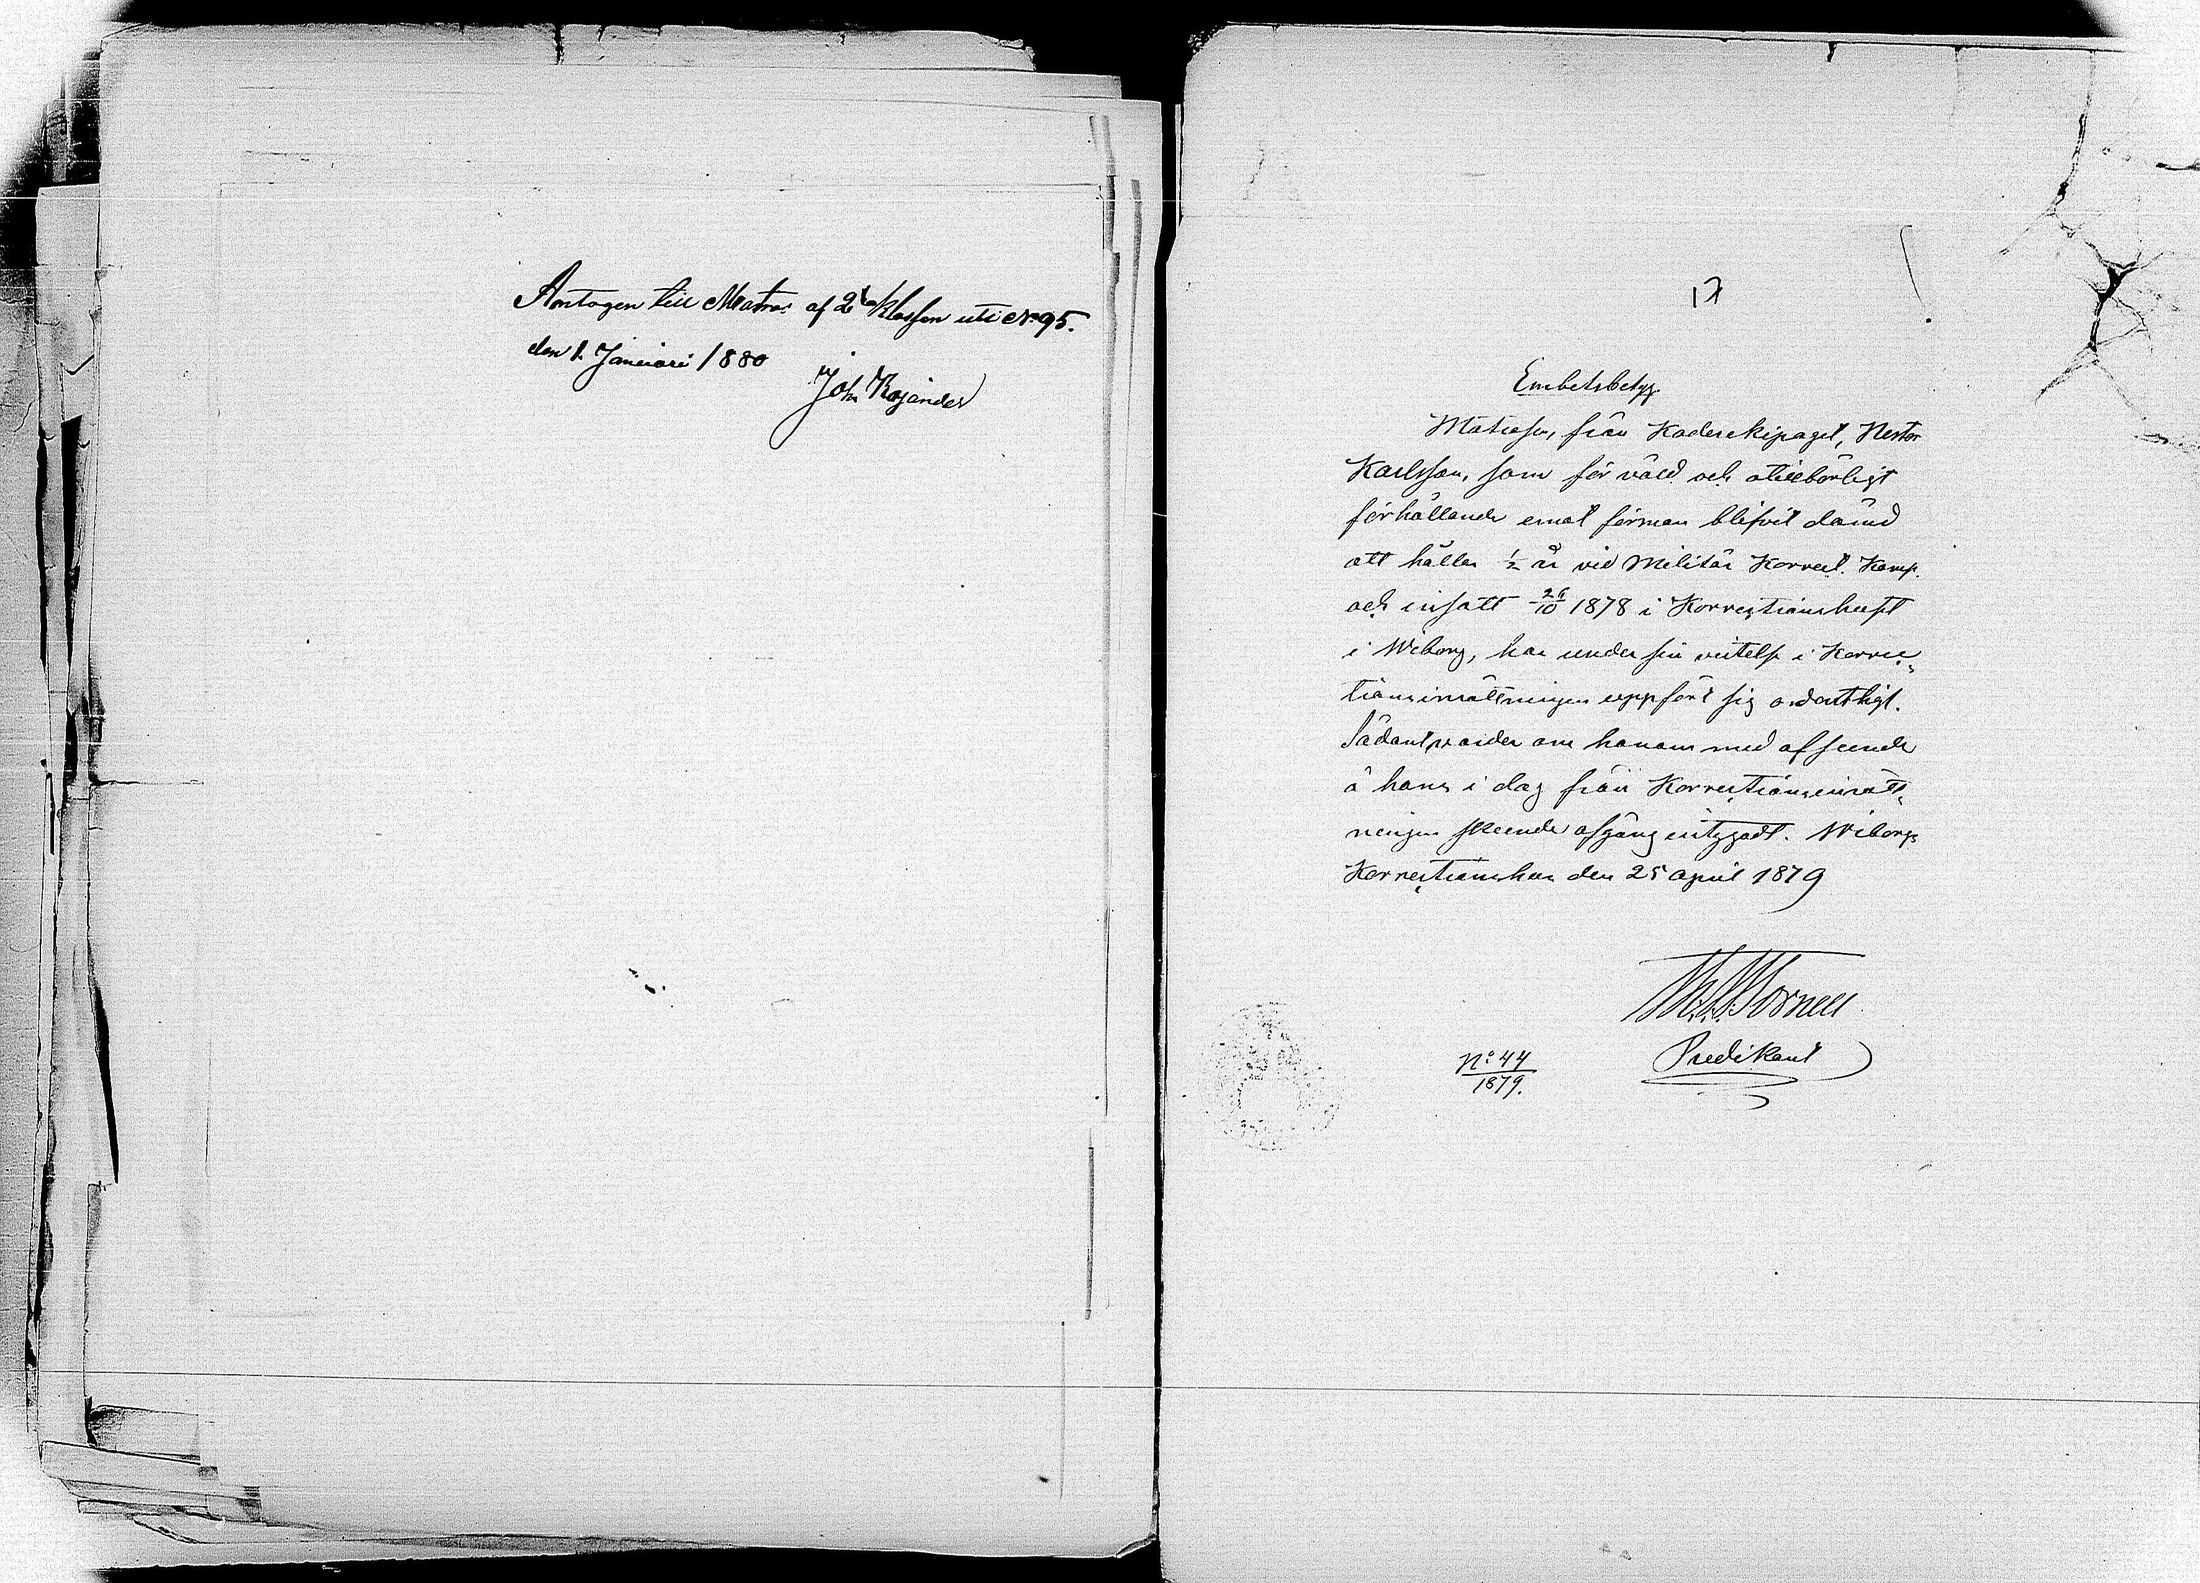 Antagen till Matros af 2dra klassen uti No 95.
den 1. Januari 1880
Joh Kajander
17
Embetsbetyg
Matrosen, från Kaderekipaget, Nestor
Karlsson, som för våld och otillbörligt
förhållande emot förman blifvit dömd
att hållas ½ år vid Militär Korrect. Komp.
och insatt 26/10 1878 i Korrectionshuset
i Wiborg, har under sin vistelse i Korrec-
tionsinrättningen uppfört sig ordentligt.
Sådant varder om honom med afseende
å hans i dag från Korrectionsinrätt-
ningen skeende afgång intygadt. Wiborgs
Korrectionshus den 25 april 1879
Hornell
Predikant
No 44
1879.